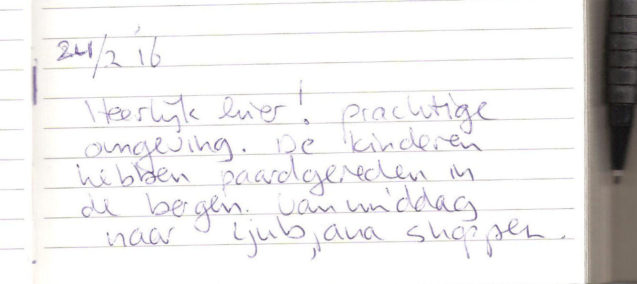 24/2 '16
Heerlijk hier! prachtige
omgeving. De kinderen
hebben paardgereden in
de bergen. Vanmiddag
naar Ljubjana shoppen.